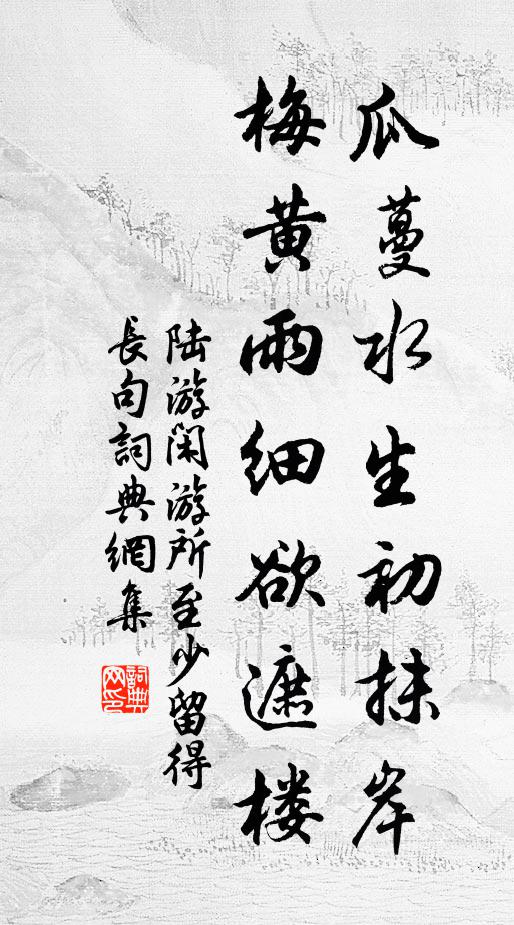 瓜蔓水生初抹岸
梅黄雨细欲遮楼
陆游闲游所至少留得
長句詞典網集
詞典网印